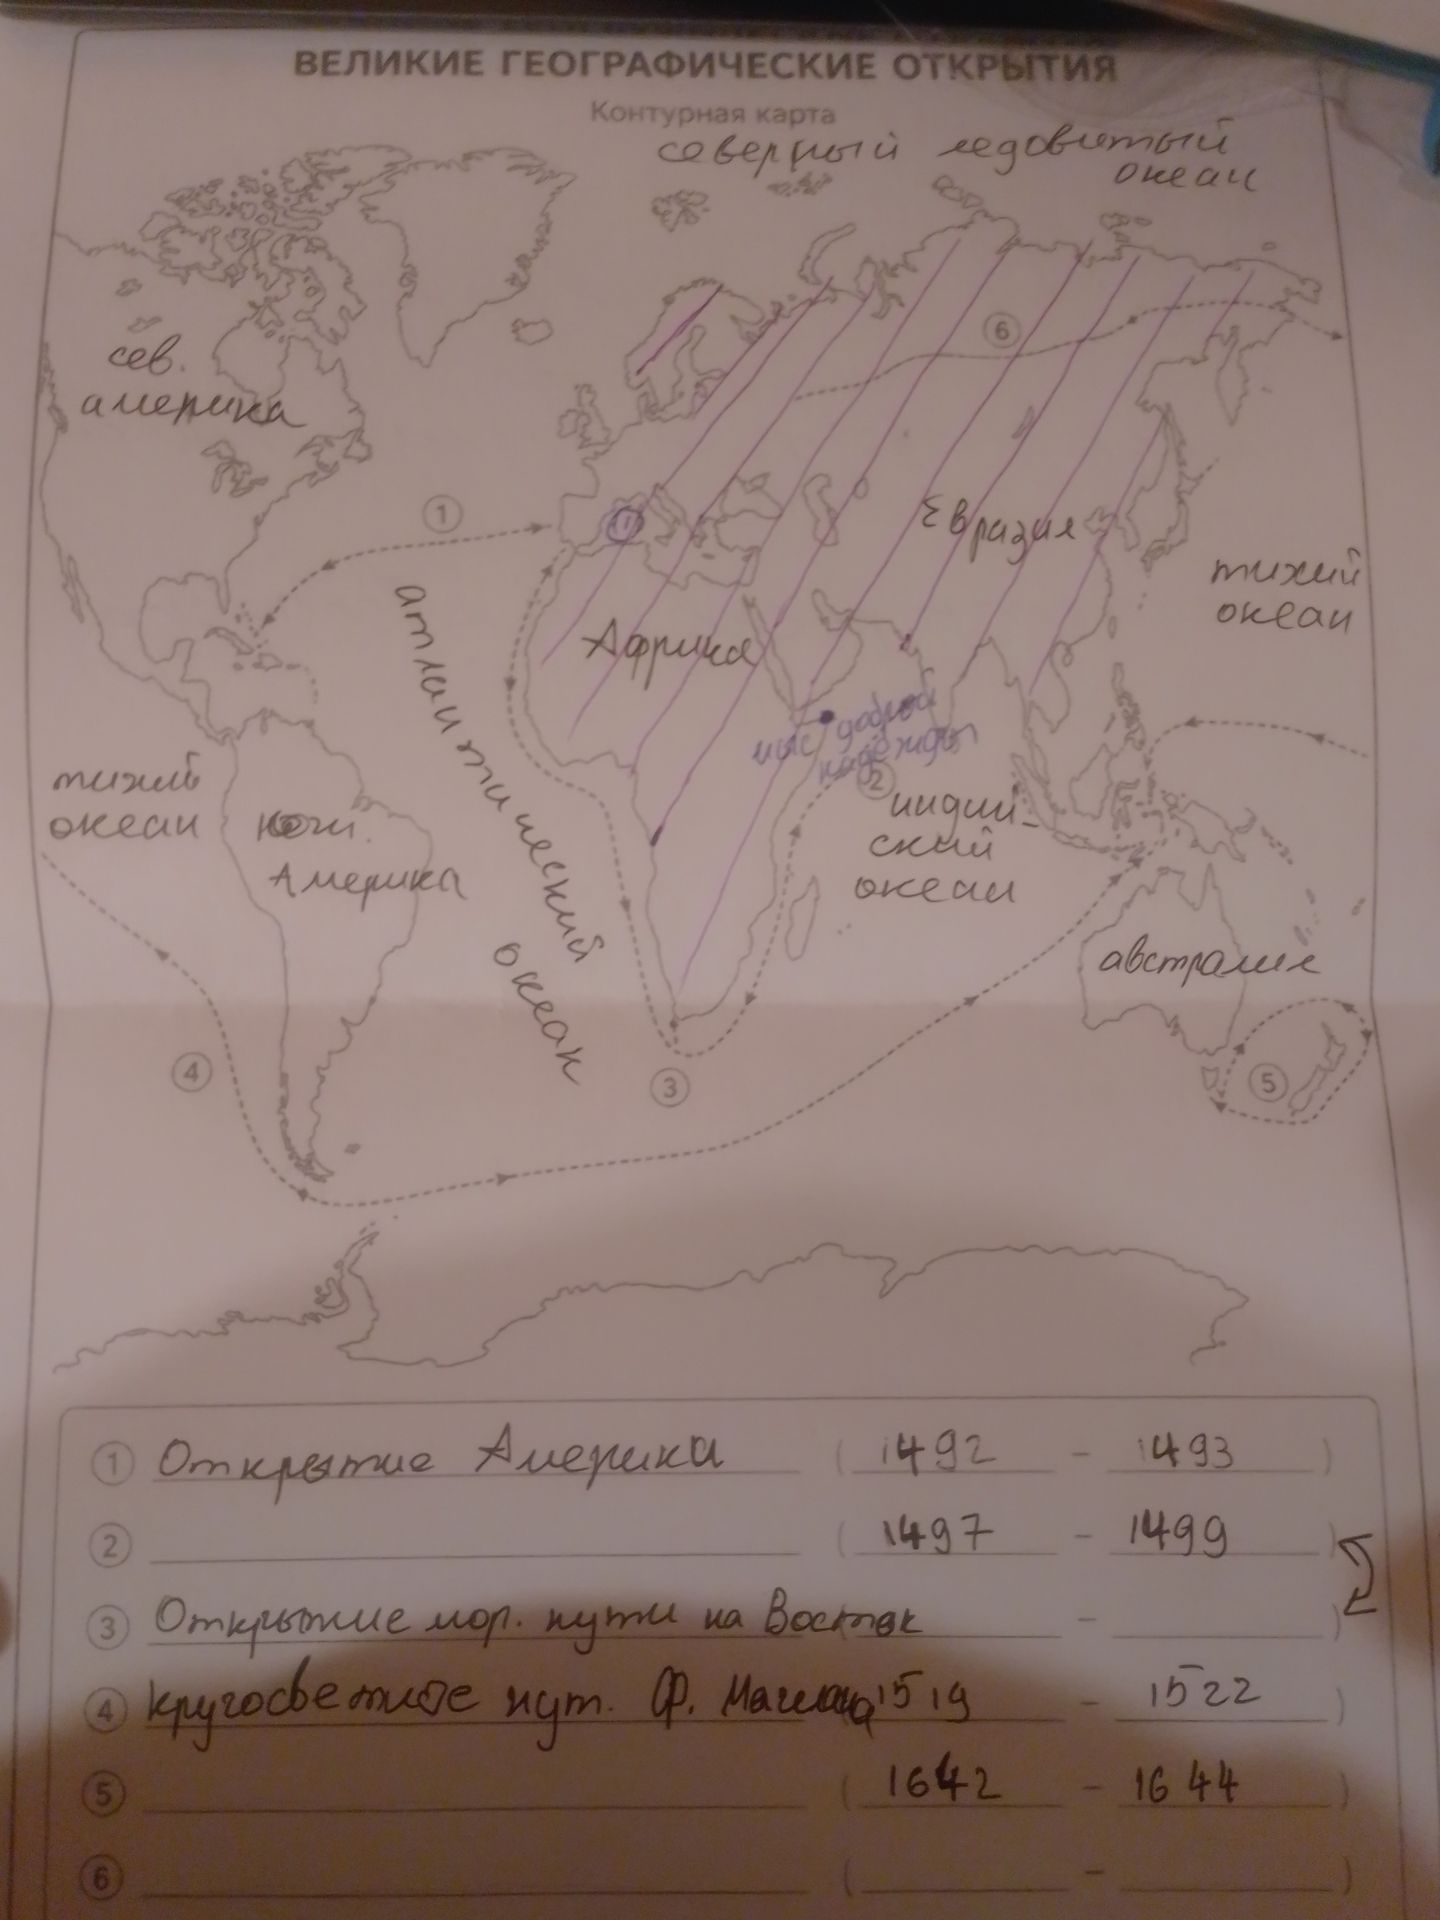 ВЕЛИКИЕ ГЕОГРАФИЧЕСКИЕ ОТКРЫТИЯ
Контурная карта
северный ледовитый
океан
6
сев.
америка
1
Евразия
тихий
океан
Африка
атлантический
океан
мыс доброй
надежды
2
тихий
океан
южн.
Америка
индий-
ский
океан
австралия
4
3
5
1 Открытие Америка ( 1492 - 1493 )
2 ( 1497 - 1499 )
3 Открытие мор. пути на Восток - )
4 кругосветное пут. Ф. Магелана 1519 - 1522 )
5 ( 1642 - 1644 )
6 ( - )